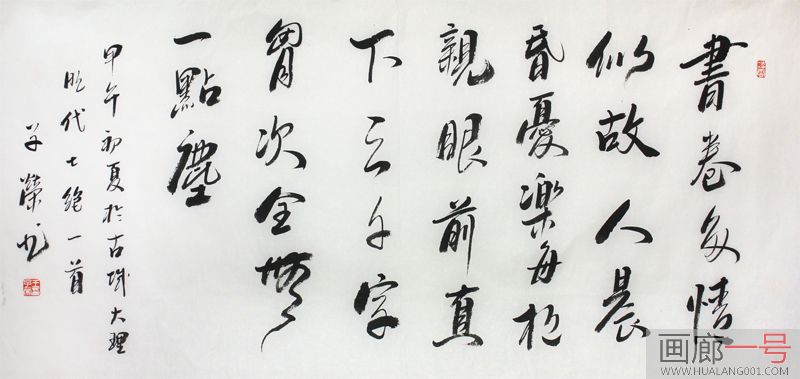 書卷多情
似故人晨
昏憂樂每相
親眼前直
下三千字
胷次全無
一點塵
甲午初夏於古城大理
明代七絕一首
榮书
画廊一号
WWW.HUALANG001.COM